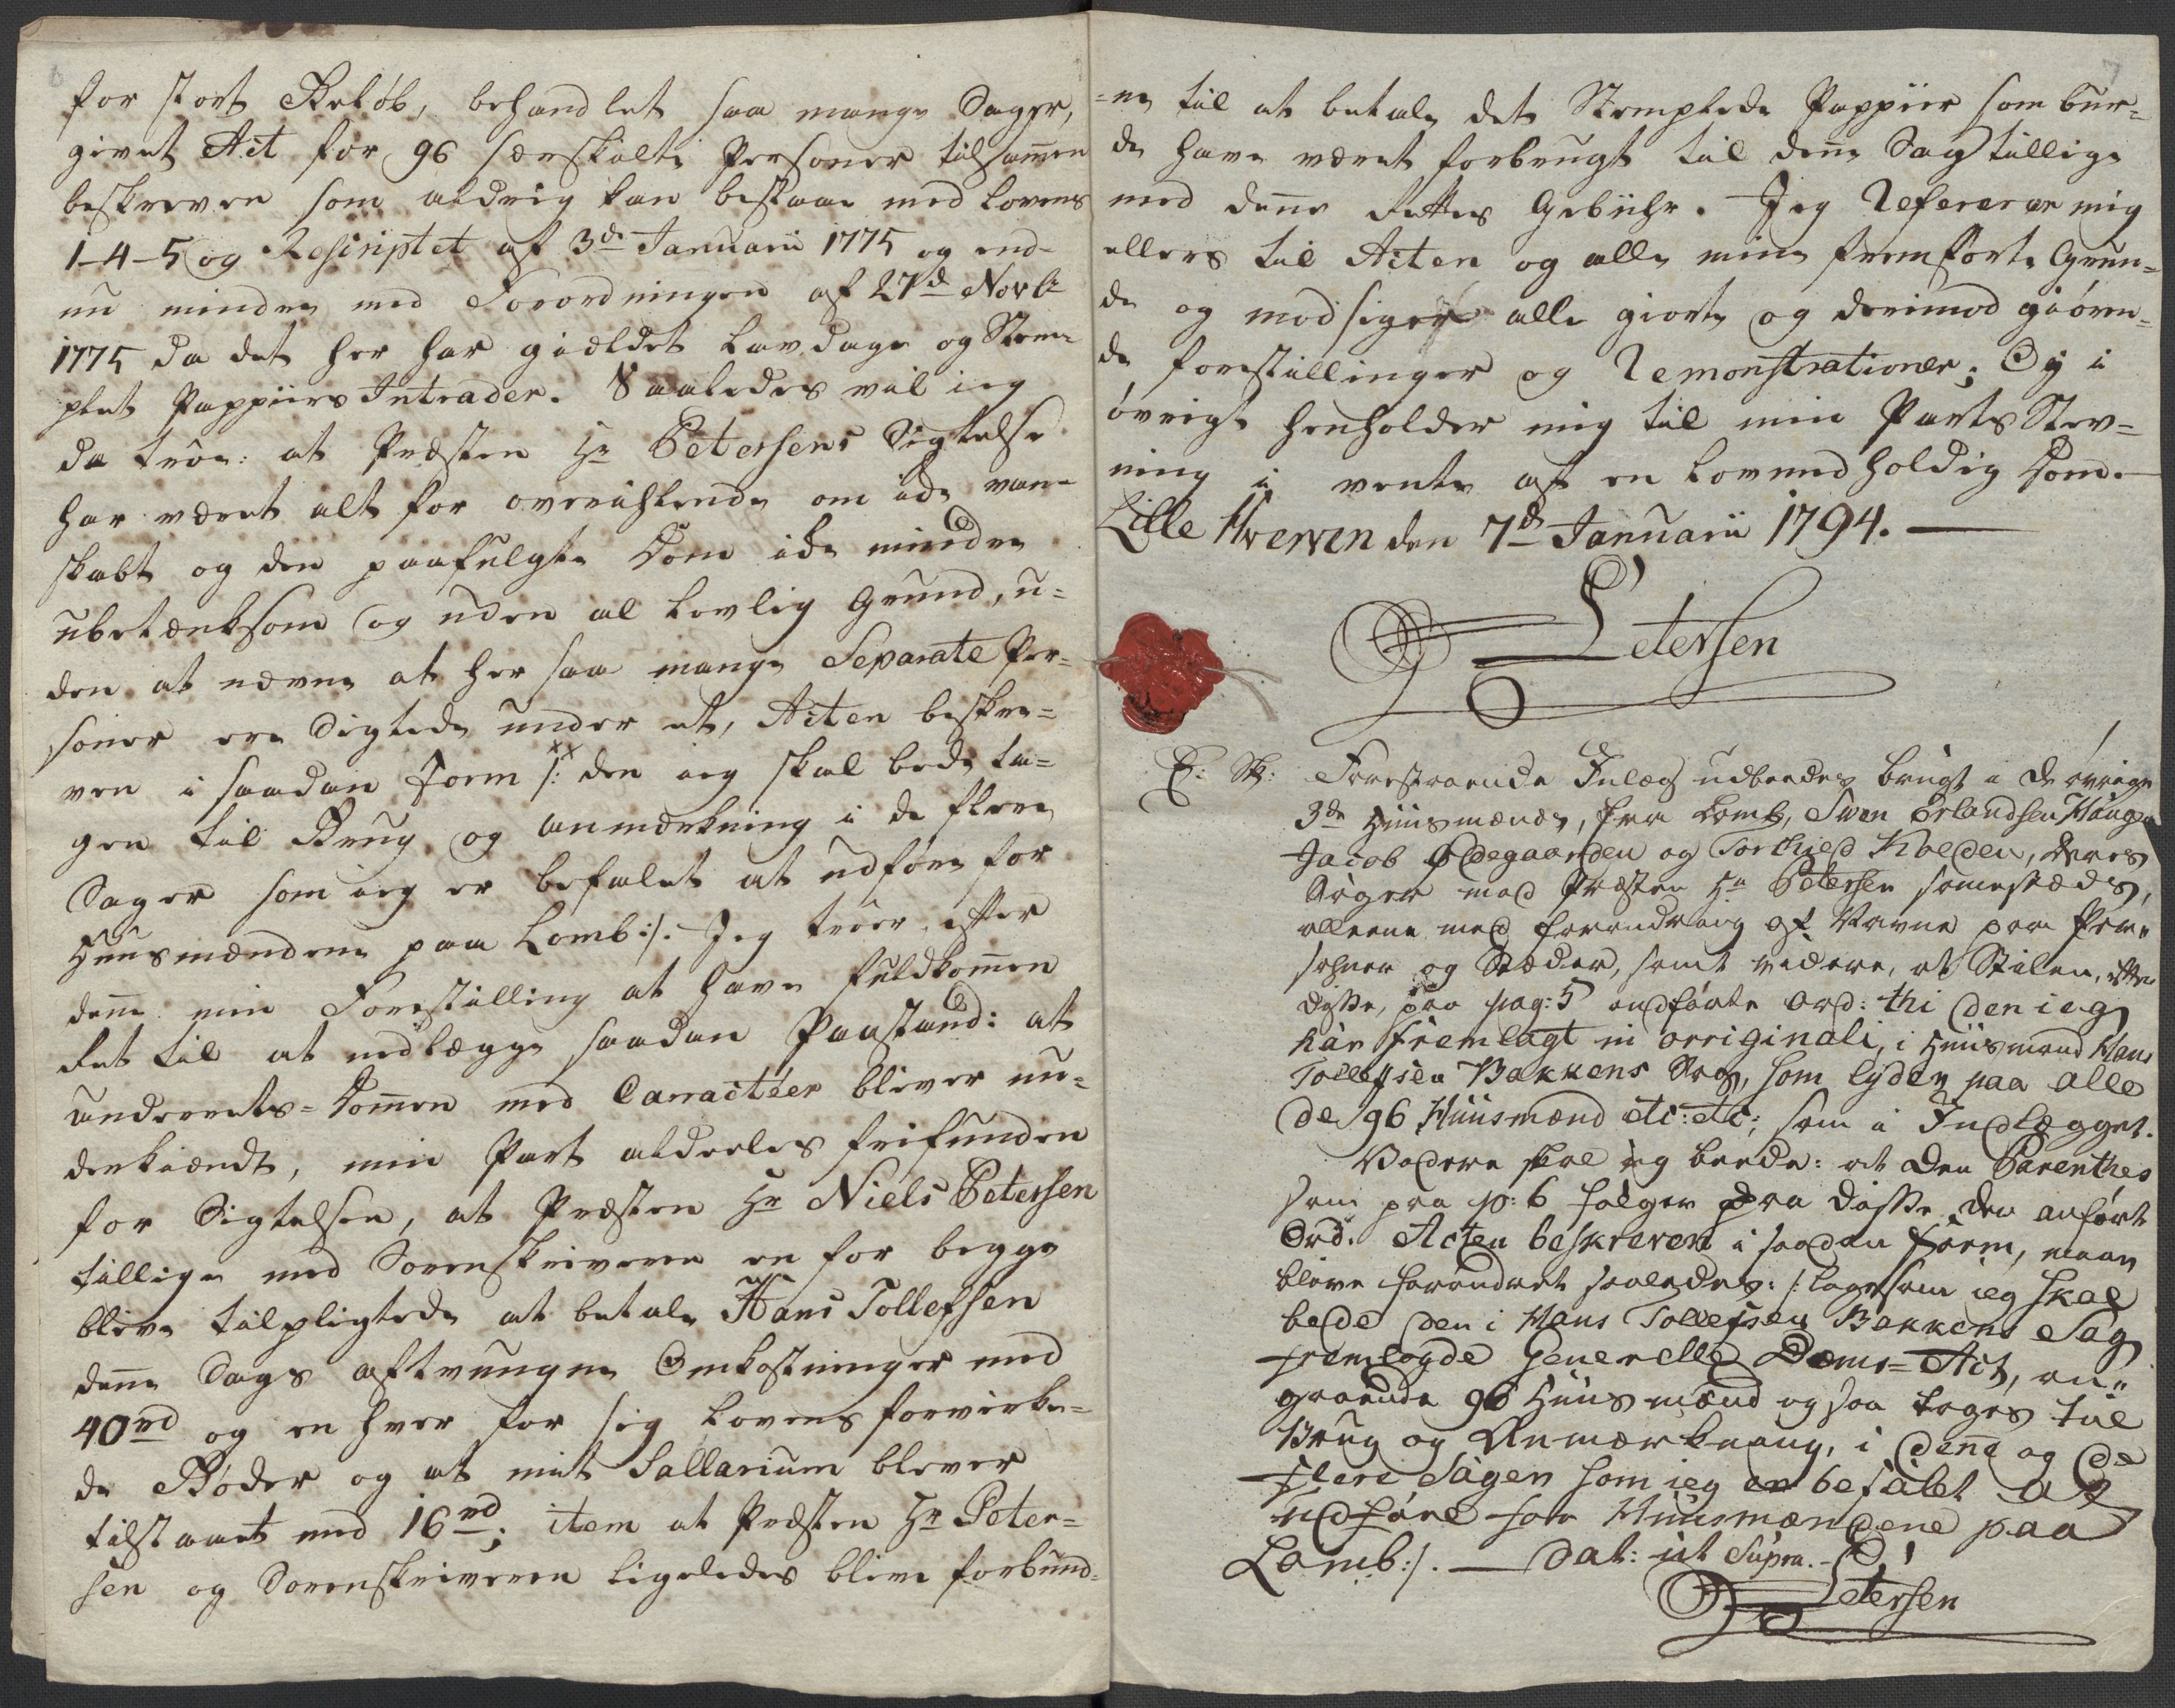 6
for stort Beløb, behandlet saa mange Sager,
givet Act for 96 særskilte Personer tilsam̄en
beskreven som aldrig kan bestaae med Lovens
1-4-5 og Rescriptet af 3de Januarii 1775 og end-
nu mindre med Forordningen af 27de Novbr
1775 da det her har gieldet Lavdage og Stem-
plet Pappiirs Intrader. Saaledes vil ieg
da troe: at Præsten Hr Petersens Sigtelse
har været alt for overiilende om ikke van-
skabt og den paafulgte Dom ikke mindre
ubetænksom og uden al lovlig Grund, u=
den at nævne at her saa mange Separate Per=
soner ere Sigtede under et, Acten beskre=
ven i saadan Form /: den ieg skal bede ta=
gen til Brug og anmærkning i de flere
Sager som ieg er befalet at udføre for
Huusmændene paa Lomb :/. Jeg troer, efter
den̄e min Forestilling at have fuldkom̄en
Ret til at nedlægge saadan Paastand: at
underrets=Dom̄en med Caractéer bliver un=
derkiændt, min Part aldeeles frifunden
for Sigtelsen, at Præsten Hr Niels Petersen
tillige med Sorenskriveren en for begge
blive tilpligtede at betale Hans Tollefsen
den̄e Sags aftvungne Omkostninger med
40rd og en hver for sig Lovens forvirke=
de Bøder og at mit Sallarium bliver
tilstaaet med 16rd; item at Præsten Hr Peter=
sen og Sorenskriveren ligeledes blive forbund=
7
=ne til at betale det Stemplede Pappiir som bur=
de have været forbrugt til den̄e Sag tillige
med den̄e Rettes Gebühr. Jeg Refererer mig
ellers til Acten og alle mine fremførte Grun=
de og modsiger alle giorte og derimod giøren=
de forestillinger og Remonstrationer; Og i
øvrigt henholder mig til min Parts Stev=
ning i vente af en lovmedholdig Dom.
Lille Hverven den 7de Januarii 1794.
Petersen
P: Sk: Forestaaende Inlæg udbeedes brugt i de øvrige
3de Huusmænds, fra Lomb, Swen Erlandsen Haugen
Jacob Ødegaarden og Torchield Kvelden, deres
Søger mod Præsten Hr Petersen sammestæds,
alleene med forandring af Navne paa Per=
sohner og Stæder, samt videre, at Stilen, efter
disse, paa pag: 5 andførte Ord: thi den ieg
har fremlagt in orriginali, i Huusmand Hans
Tollefsen Bakkens Sag, som lyder paa alle
de 96 Huusmænd etc: etc; som i Indlægget.
Videre skal ieg beede: at den Parenthes
som paa p: 6 følger paa disse der anført
Ord. Acten beskreven i saadan Form, maae
blive forandret saaledes: /: lagesom ieg skal
bede den i Hans Tollefsen Bakkens Sag
fremlagde Generelle Doms=Act, an=
gaaende 96 Huusmænd ogsaa tages til
Brug og Anmærkning, i den̄e og de
flere Sager som ieg er befalet at
udføre for Huusmændene paa
Lomb :/. — Dat: ut Supra. —
Petersen